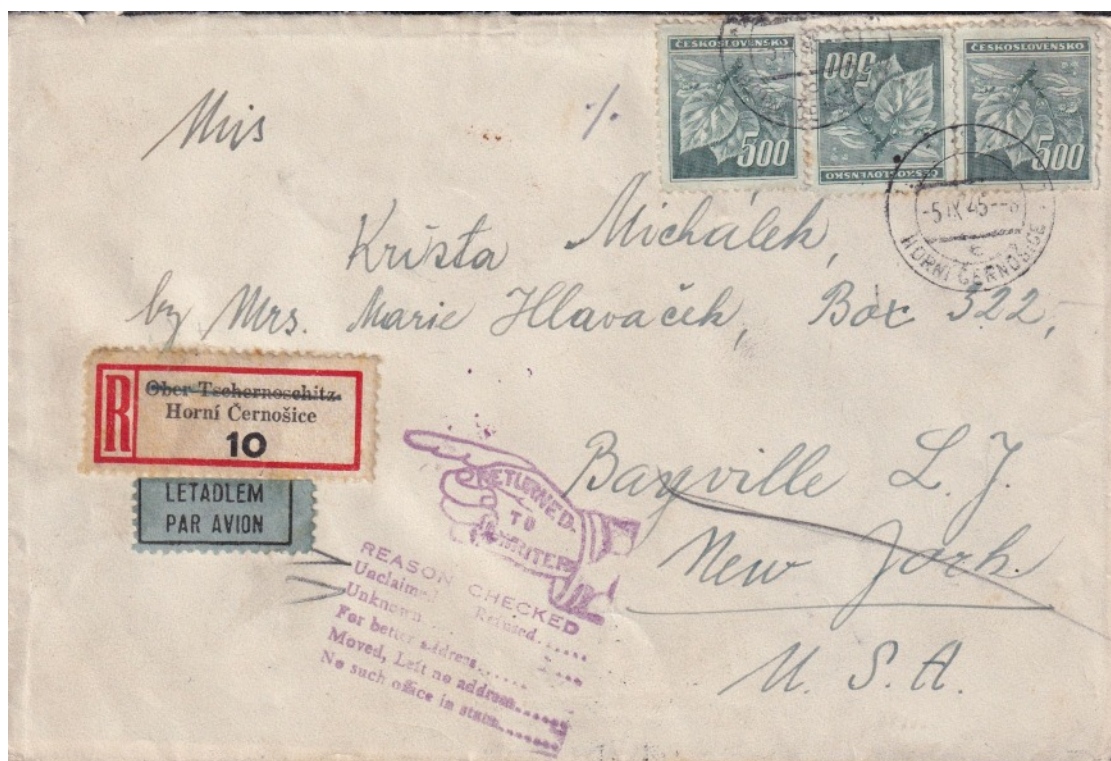 ČESKOSLOVENSKO
500
ČESKOSLOVENSKO
500
ČESKOSLOVENSKO
500
-5.IX.45--8
c
HORNÍ ČERNOŠICE
Mris
Krista Michálek,
by Mrs. Marie Hlavaček, Box 322,
Bayville L. J.
New York
U. S. A.
R
Ober-Tschernoschitz.
Horní Černošice
10
LETADLEM
PAR AVION
RETURNED
TO
WRITER
REASON CHECKED
Unclaimed Refused
Unknown
For better address
Moved, Left no address
No such office in state